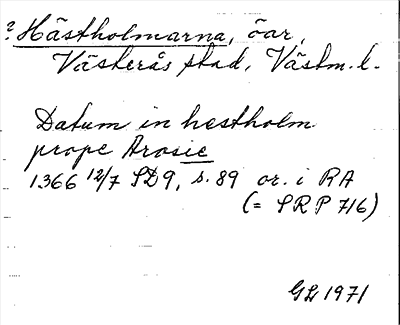 ? Hästholmarna, öar,
Västerås stad, Västm. l.
Datum in hestholm
prope Arosie
1366 12/7 SD9, s. 89 or. i RA
(= SRP 716)
GL 1971